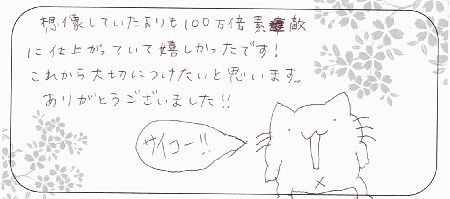 想像していたよりも100万倍素敵
に仕上がっていて嬉しかったです!
これから大切につけたいと思います。
ありがとうございました!!
サイコー!!